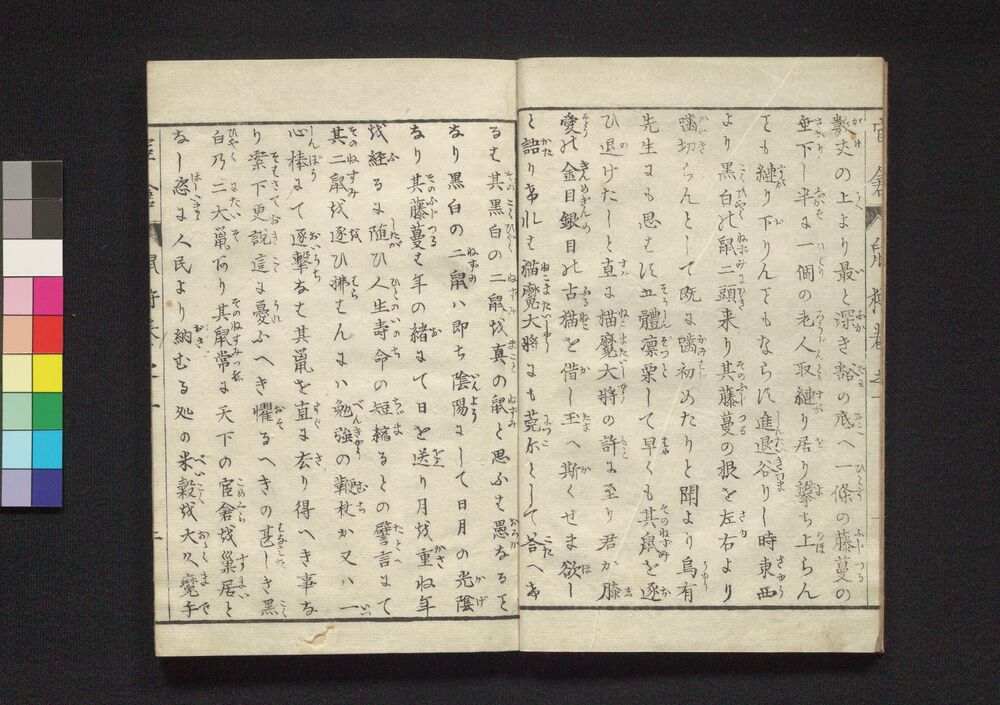 数丈の上より最と深き谿の底へ一條の藤蔓の
垂下し半は一個の老人取縋り居り攀ち上らん
とも縋り下りんともならに進退谷りし時東西
より黒白の鼠二頭来り其藤蔓の根を左右より
噛切らんとして既に噛初めたりと聞より烏有
先生にも思はに五體凛栗して早くも其鼠を逐
ひ退けたしと直に猫魔大將の許に至り君か膝
愛の金目銀目の古猫を借し玉へ斯くせま欲し
と語り希れは猫魔大將にも莞尓として答へき
るは其黒白の二鼠を真の鼠と思ふは愚なると
なり黒白の二鼠ハ即ち陰陽にして日月の光陰
なり其藤蔓は年の緒にて日を送り月を重ね年
を経るに随ひ人生壽命の短縮るとの譬言にて
其二鼠を逐ひ拂はんにハ勉強の鞭杖か又ハ一
心棒にて逐撃なは其鼠を直に去り得へき事な
り案下更説這に憂ふへき懼るへきの甚しき黒
白乃二大鼠あり其鼠常に天下の官倉を巣居と
なし恣に人民より納むる処の米穀を大く竟手